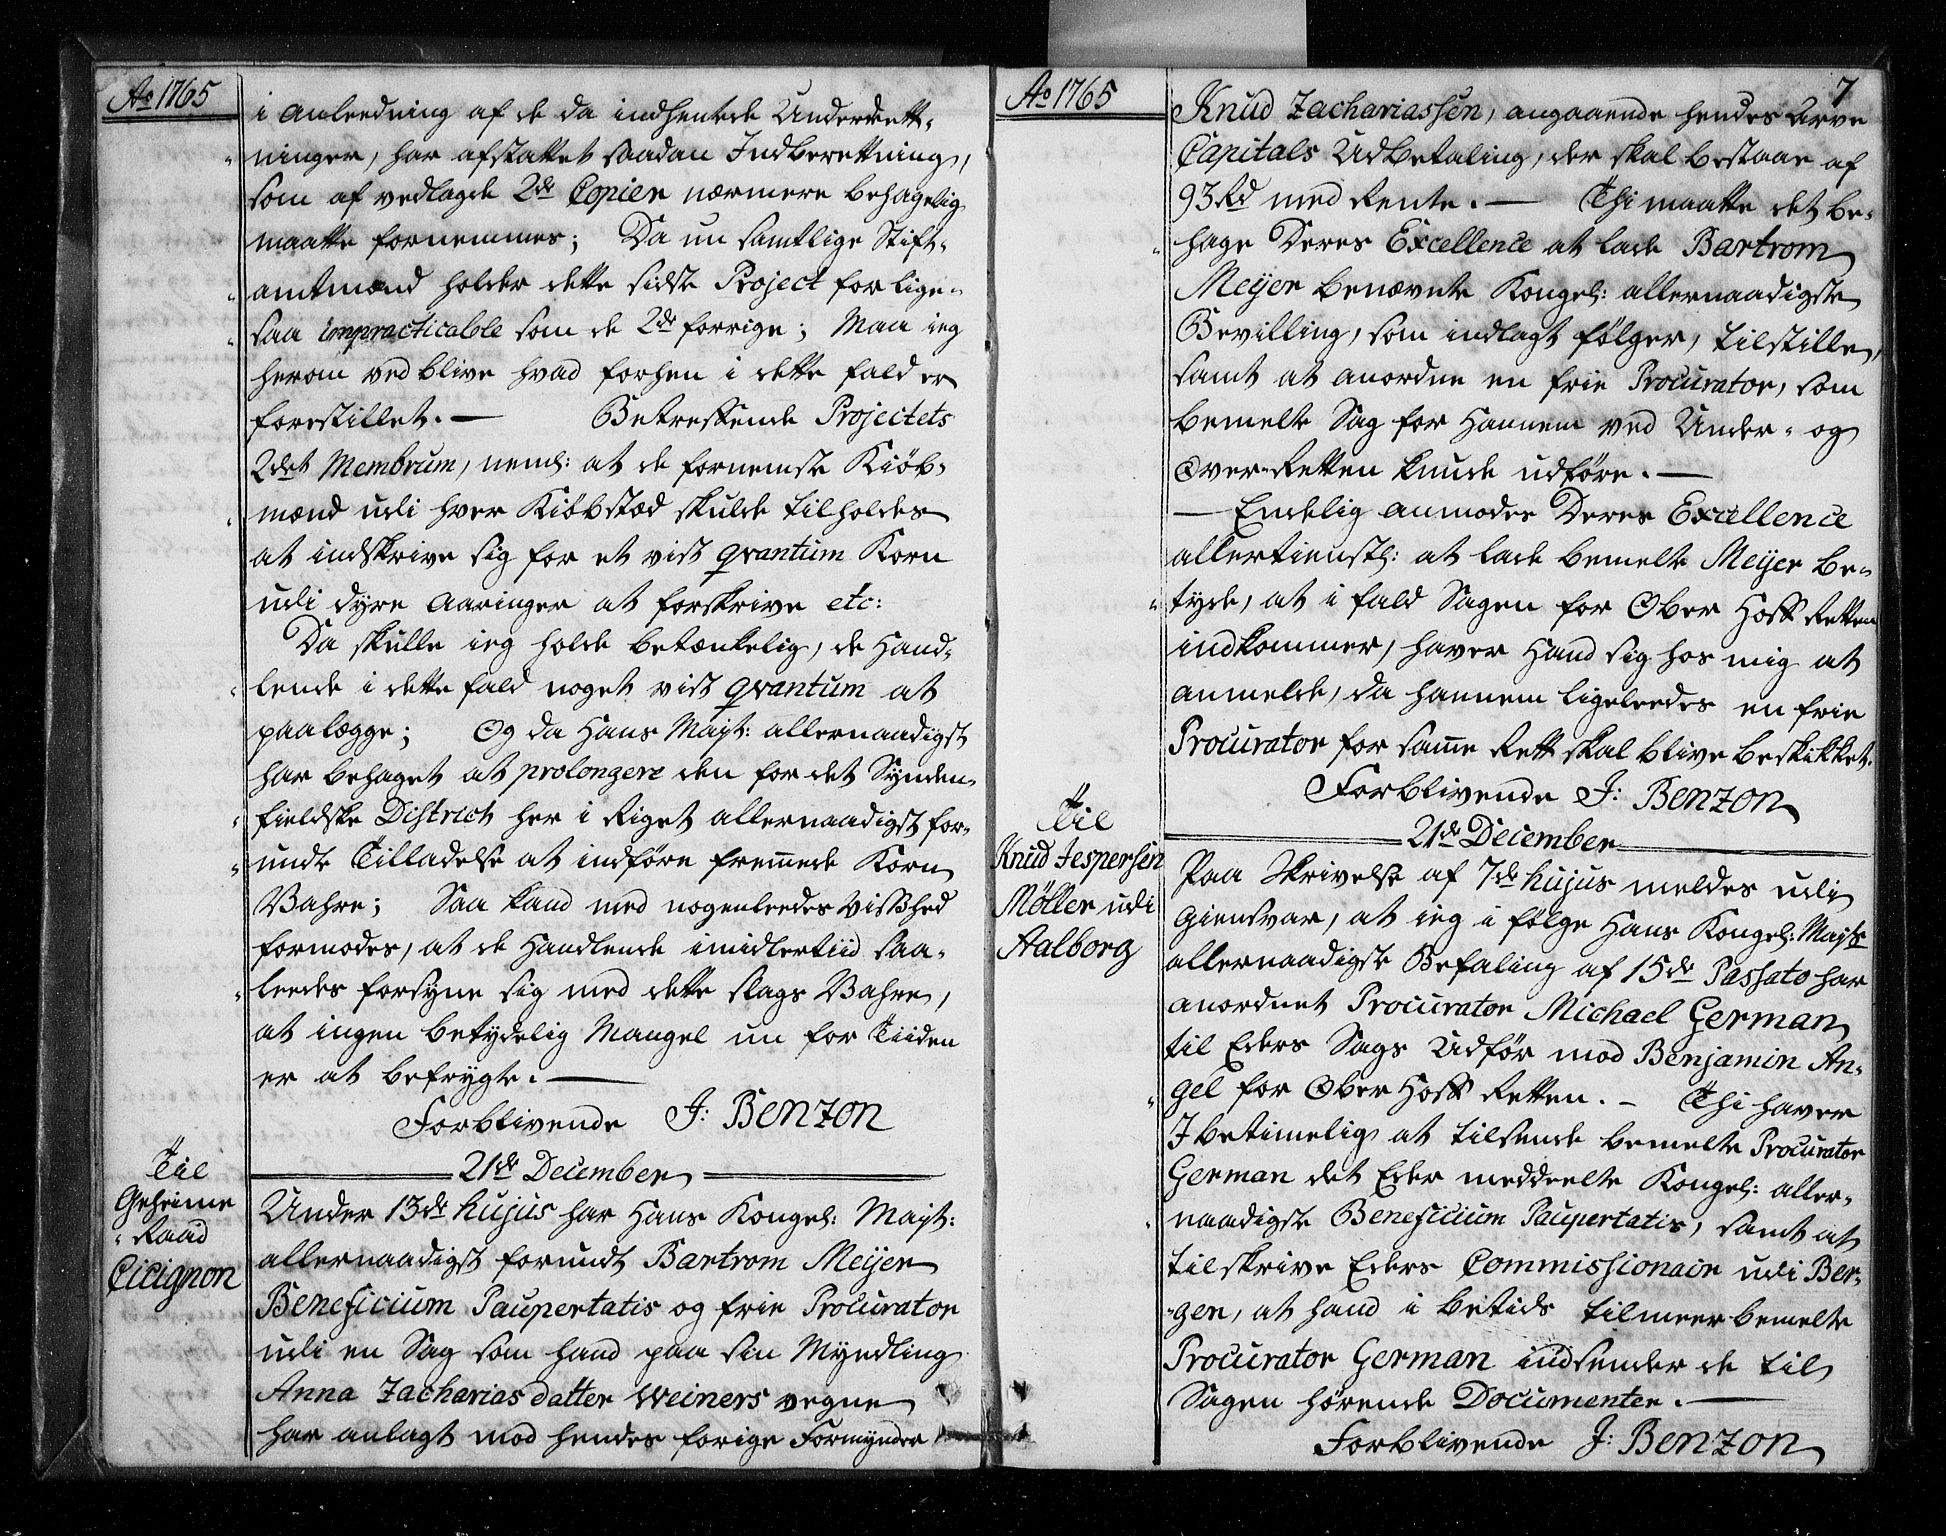 Ao 1765
i Anleedning af de da indhentede Underrett-
ninger, har afstattet saadan Indberettning,
som af vedlagde 2de Copier nærmere behagelig
maatte fornemmes; Da nu samtlige Stift-
amtmænd holder dette sidste Project for lige-
saa impracticable som de 2de forrige; Maa ieg
herom ved blive hvad forhen i dette fald er
forestillet. — Betreffende Projectets
2det Membrum, neml: at de fornemste Kiöb-
mænd udi hver Kiöbstæd skulde tilholdes
at indskrive sig for et vist qvantum Korn
udi dyre Aaringer at forskrive etc:
Da skulle ieg holde betænkelig, de Hand-
lende i dette fald noget vist qvantum at
paalægge; Og da Hans Majt: allernaadigst
har behaget at prolongere den for det Synden-
fieldske District her i Riget allernaadigst for-
undte Tilladelse at indføre fremmede Korn
Vahre; Saa kand med nogenleedes Visshed
formodes, at de Handlende imidlertiid saa-
leedes forsyne sig med dette slags Vahre,
at ingen betydelig Mangel nu for Tiiden
er at befrygte. —
Forblivende J: Benzon
21de December
Til
Geheime
Raad
Cicignon
Under 13de hujus har Hans Kongel: Majt:
allernaadigst forundt Bartrom Meijer
Beneficium Paupertatis og frie Procurator
udi en Sag som hand paa sin Myndling
Anna Zacharias datter Weiners vegne
har anlagt mod hendes forige Formynder
Ao 1765
7
Knud Zachariassen, angaaende hendes Arve
Capitals Udbetaling, der skal bestaae af
93 Rd med Rente. — Thi maatte det be-
hage Deres Excellence at lade Bartrom
Meijer benævnte Kongel: allernaadigste
Bevilling, som indlagt følger, tilstille,
samt at anordne en frie Procurator, som
bemelte Sag for Hannem ved Under- og
Over-Retten kunde udføre. —
— Endelig anmodes Deres Excellence
allertienstl: at lade bemelte Meijer be-
tyde, at i fald Sagen for Ober Hoff Retten
indkommer, haver Hand sig hos mig at
anmelde, da hannem ligeleedes en frie
Procurator for samme Rett skal blive beskikket.
Forblivende J: Benzon
21de December
Til
Knud Jespersen
Møller udi
Aalborg
Paa Skrivelse af 7de hujus meldes udi
Giensvar, at ieg i følge Hans Kongel: Majts
allernaadigste Befaling af 15de Passato har
anordnet Procurator Michael German
til Eders Sags Udfør mod Benjamin An-
gel for Ober Hoff Retten. — Thi haver
I betimelig at tilsende bemelte Procurator
German det Eder meddeelte Kongel: aller-
naadigste Beneficium Paupertatis, samt at
tilskrive Eders Commissionair udi Ber-
gen, at hand i betids tilmeerbemelte
Procurator German indsender de til
Sagen hørende Documenter. —
Forblivende J: Benzon